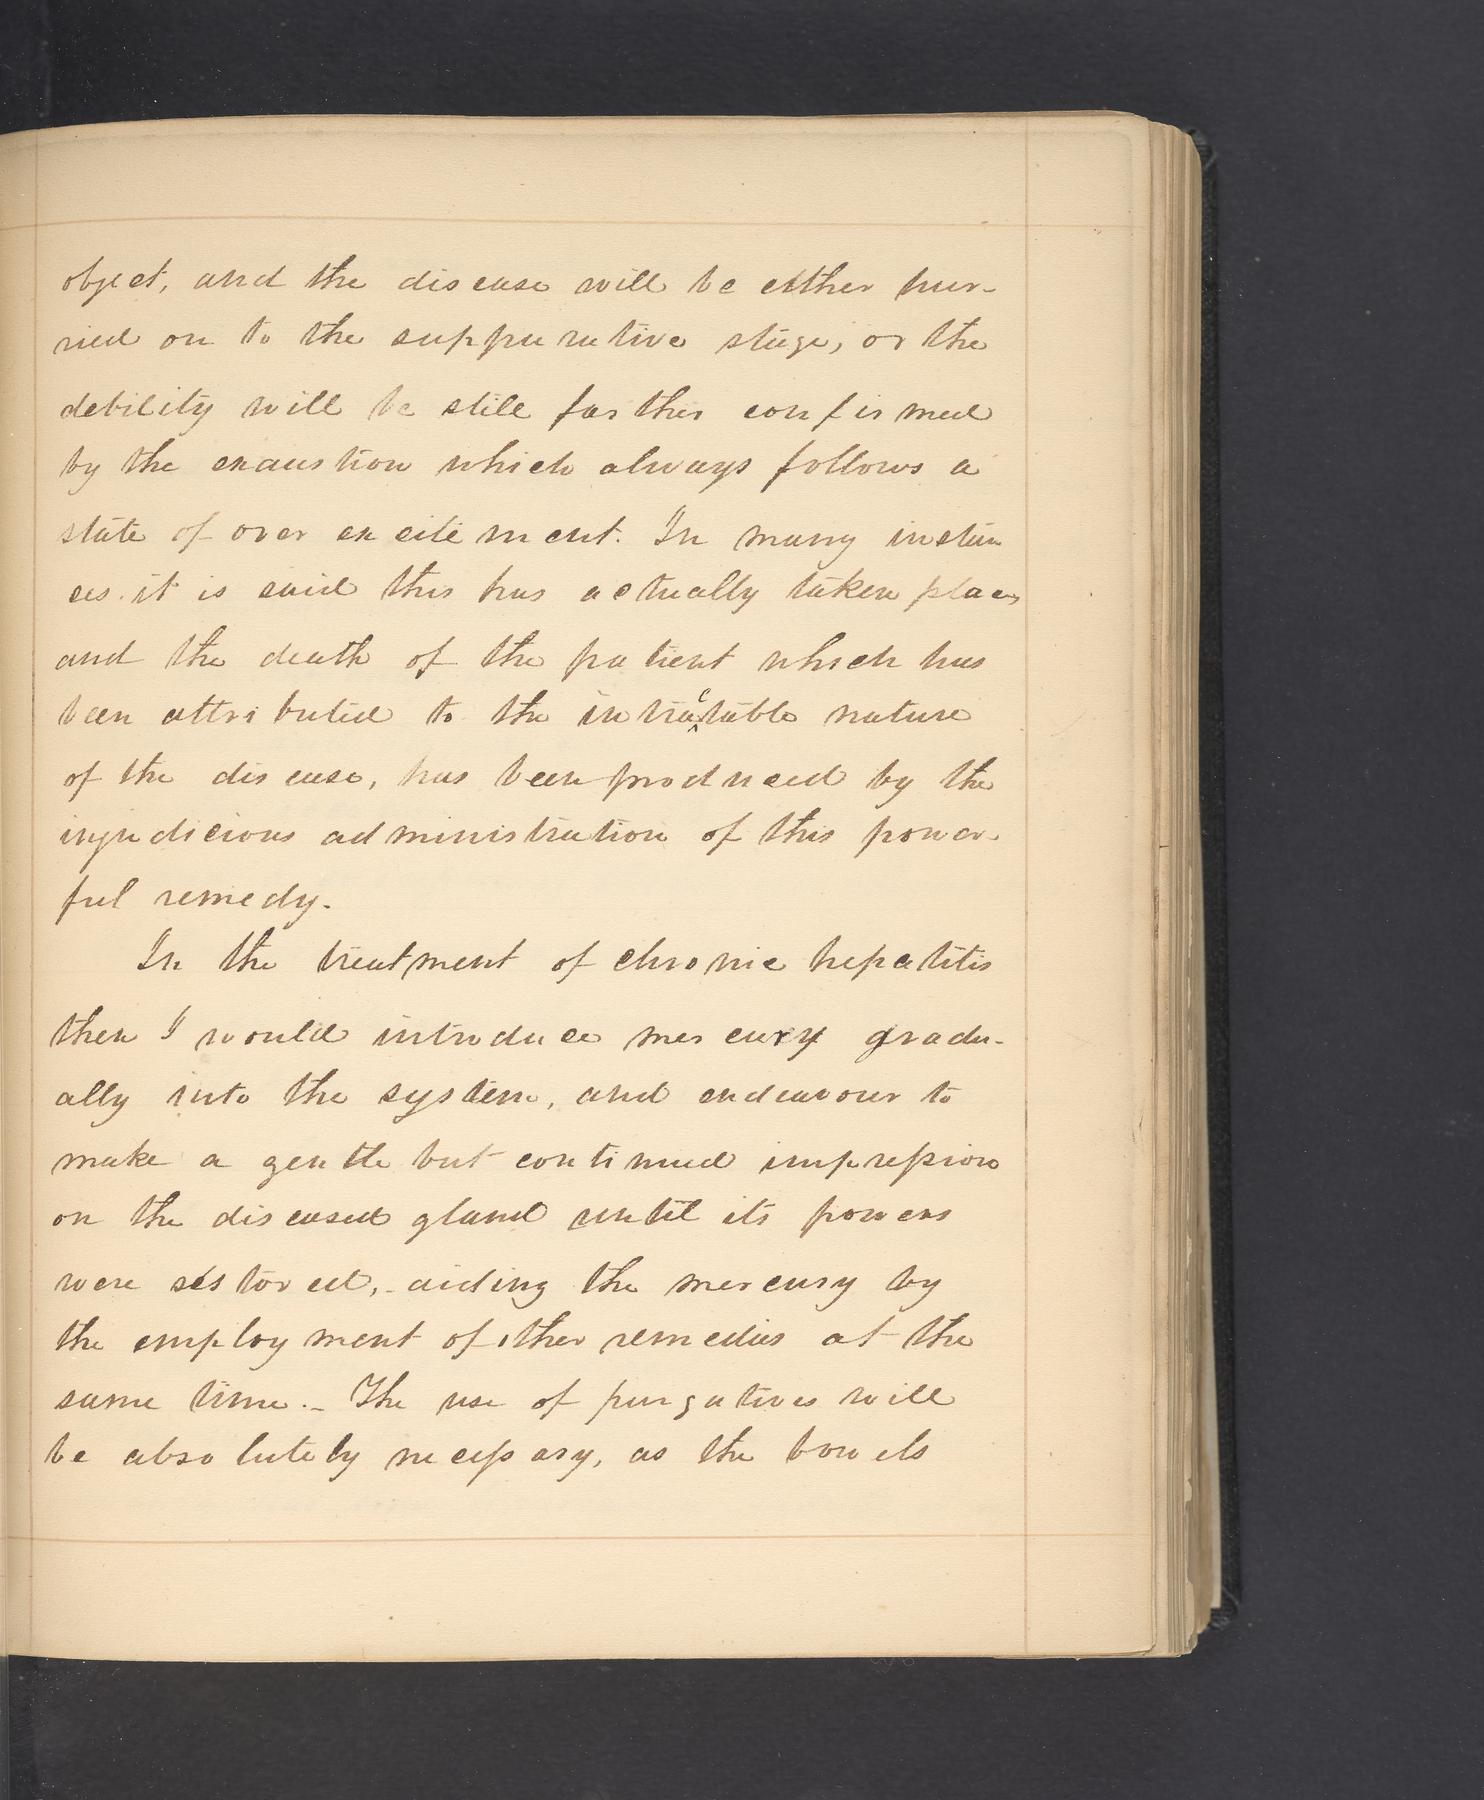 object, and the disease will be either hur-
ried on to the suppurative stage, or the
debility will be still farther confirmed
by the exaustion which always follows a
state of over excitement. In many instan
ces it is said this has actually taken place
and the death of the patient which has
been attributed to the intractable nature
of the disease, has been produced by the
injudicious administration of this power-
ful remedy.
In the treatment of chronic hepatitis
then I would introduce mercury gradu-
ally into the system, and endeavour to
make a gentle but continued impression
on the diseased gland until its powers
were restored,- aiding the mercury by
the employment of other remedies at the
same time.- The use of purgatives will
be absolutely necessary, as the bowels